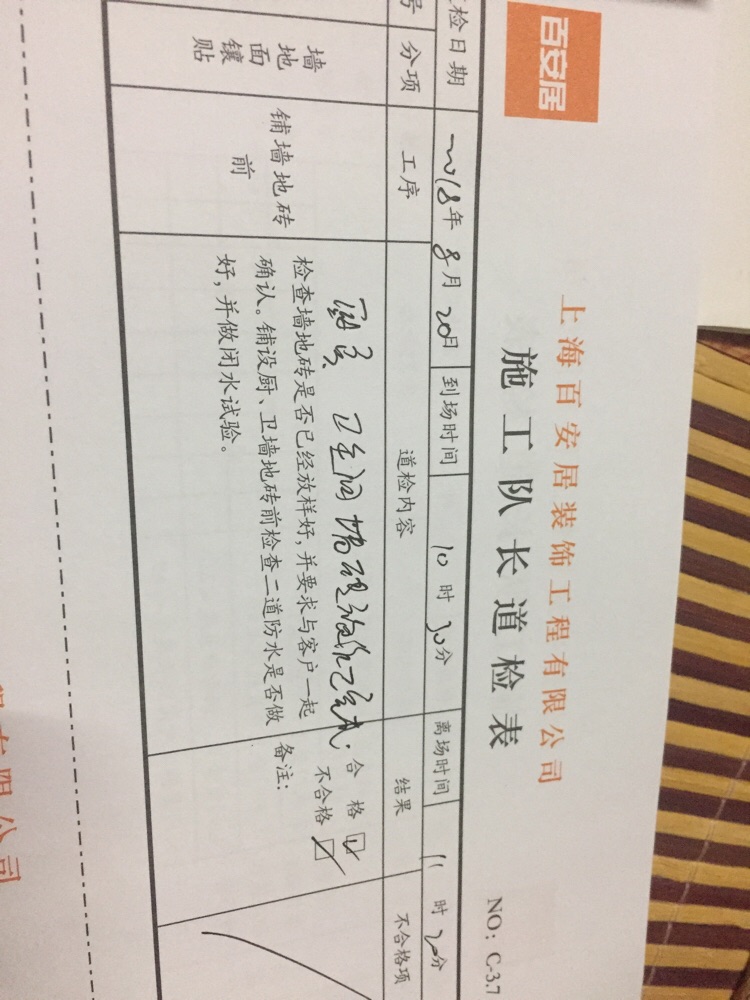 百安居
上海百安居装饰工程有限公司
施工队长道检表
NO: C-3.7
检日期 2018年8月20日 到场时间 10时30分 离场时间 11时20分
号 分项 工序 道检内容 结果 不合格项
墙地面镶贴
铺墙地砖前
卫生间墙砖放样已完成.
检查墙地砖是否已经放样好,并要求与客户一起
确认。铺设厨、卫墙地砖前检查二道防水是否做
好,并做闭水试验。
合格
不合格
备注:
有限公司